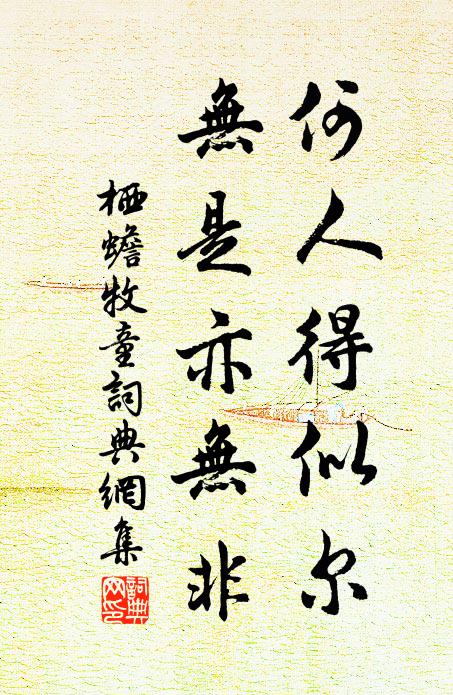 何人得似尔
無是亦無非
栖蟾牧童詞典網集
詞典
网印